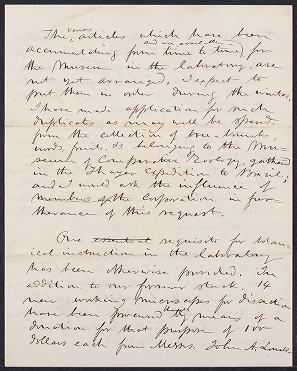 The various articles which have been
accumulating from time to time, for
and are available
the Museum in the laboratory, are
not yet arranged. I expect to
put them in order during the winter.
I have made application for such
duplicates as may well be spared
from the collection of tree-trunks,
woods, fruits, &c belonging to the Mu-
seum of Comparative Zoology, gathered
in the Thayer Expedition to Brazil;
and I would ask the influence of
members of the Corporation in fur-
therance of this request.
One essential requisite for botan-
ical instruction in the laboratory
has been otherwise provided. In
addition to our former stock, 14
new working microscopes for dissection
have been procured by means of a
donation for that purpose of 100
dollars each from Messrs. John A. Lowell